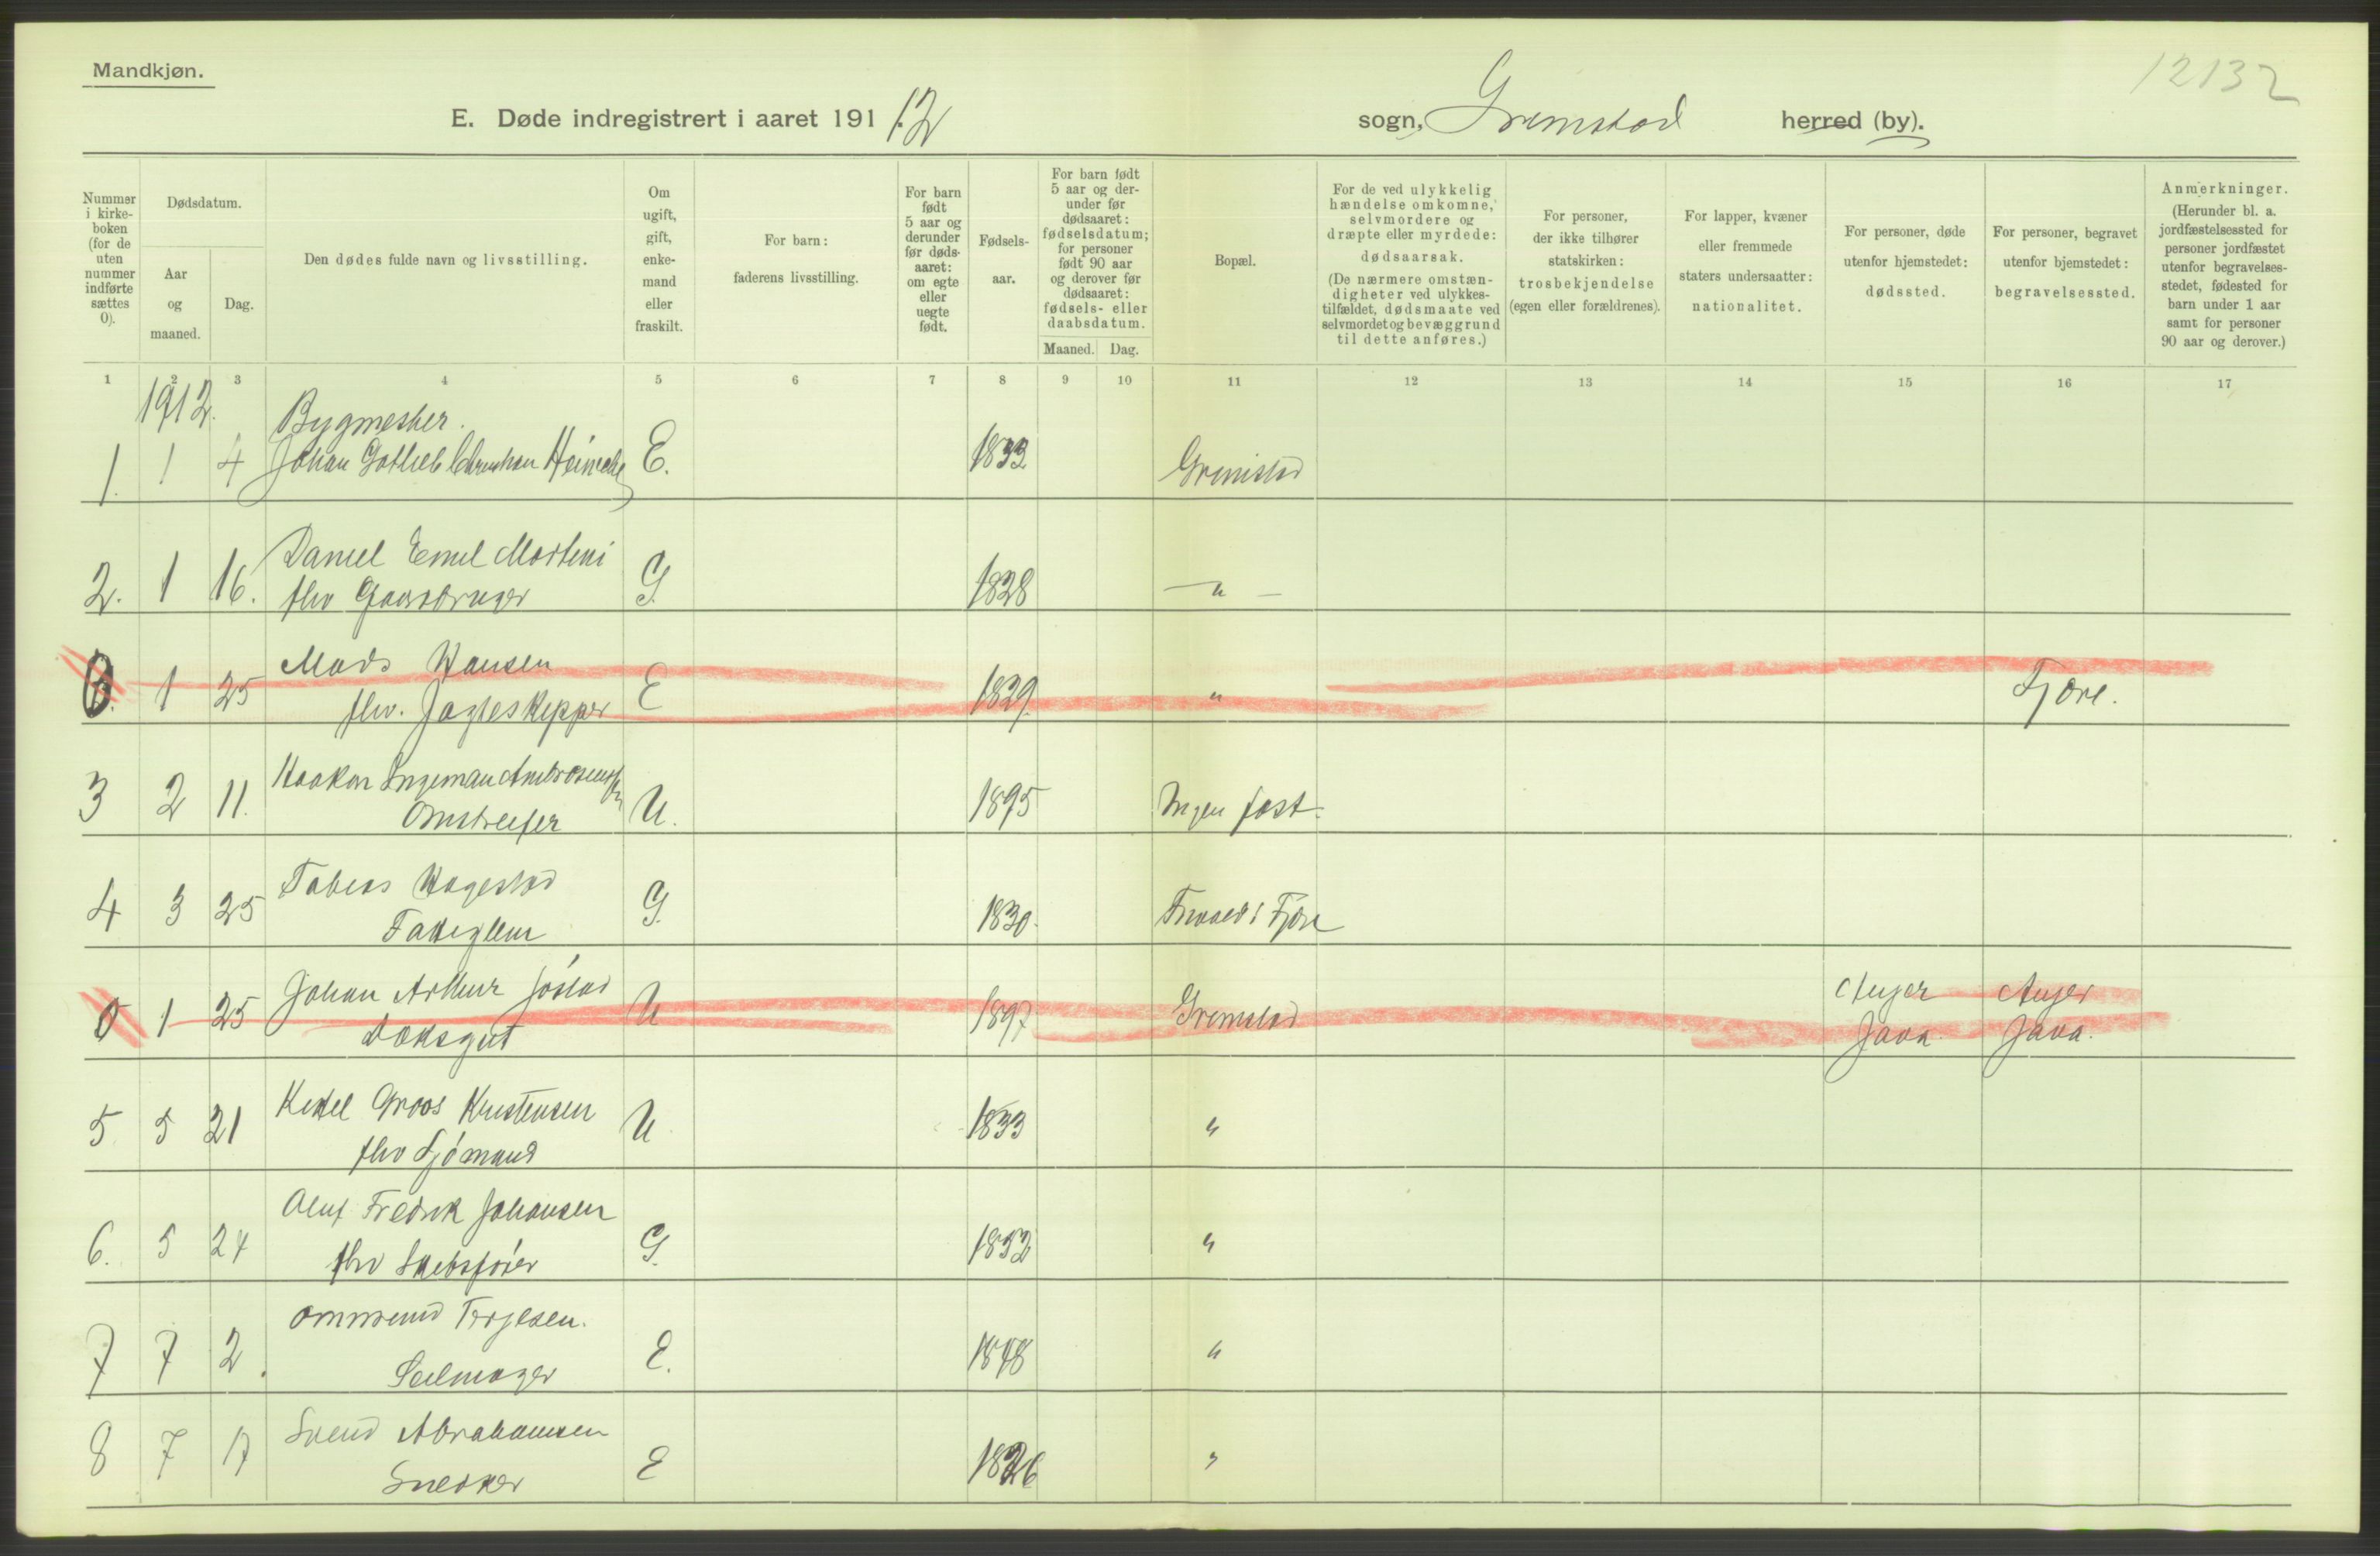 Mandkjøn.
12132
E. Døde indregistrert i aaret 191 12 sogn, Grimstad herred (by).
Nummer i kirke-boken (for de uten nummer indførte sættes 0).
Dødsdatum.
Aar og maaned.
Dag.
Den dødes fulde navn og livsstilling.
Om ugift, gift, enke-mand eller fraskilt.
For barn: faderens livsstilling.
For barn født 5 aar og derunder før døds-aaret: om egte eller uegte født.
Fødsels-aar.
For barn født 5 aar og der-under før dødsaaret: fødselsdatum; for personer født 90 aar og derover før dødsaaret: fødsels- eller daabsdatum.
Maaned. Dag.
Bopæl.
For de ved ulykkelig hændelse omkomne, selvmordere og dræpte eller myrdede: dødsaarsak.
(De nærmere omstæn-digheter ved ulykkes-tilfældet, dødsmaate ved selvmordet og bevæggrund til dette anføres.)
For personer, der ikke tilhører statskirken: trosbekjendelse (egen eller forældrenes).
For lapper, kvæner eller fremmede staters undersaatter: nationalitet.
For personer, døde utenfor hjemstedet: dødssted.
For personer, begravet utenfor bjemstedet: begravelsessted.
Anmerkninger.
(Herunder bl. a. jordfæstelsessted for personer jordfæstet utenfor begravelses-stedet, fødested for barn under 1 aar samt for personer 90 aar og derover.)
1 2 3 4 5 6 7 8 9 10 11 12 13 14 15 16 17
1912.
Bygmester.
1. 1 4 Johan Gotlieb Christian Heinecke E. 1833 Grimstad
Daniel Emil Martini
2. 1 16. fhv Gaardbruger G. 1828 — " —
Mads Hansen
0. 1 25 fhv. Jagteskipper E 1829. " Fjære.
Haakon Ingeman Ambrosensen
3 2 11. Omstreifer U. 1895 Ingen fast.
Tobias Hagestad
4 3 25 Fattiglem G. 1830. i Fjære
Johan Arthur Jostad
0 1 25 Dæksgut U 1897 Grimstad Anjer Java. Anjer Java.
Kittel Groos Kristensen
5 5 21 fhv Sjømand U 1833 "
Oluf Fredrik Johansen
6. 5 24 fhv Skibsfører G. 1832 "
Ommund Terjesen.
7 7 2. Seilmager E. 1848 "
Svend Abrahamsen
8 7 17 Snedker E 1826 "